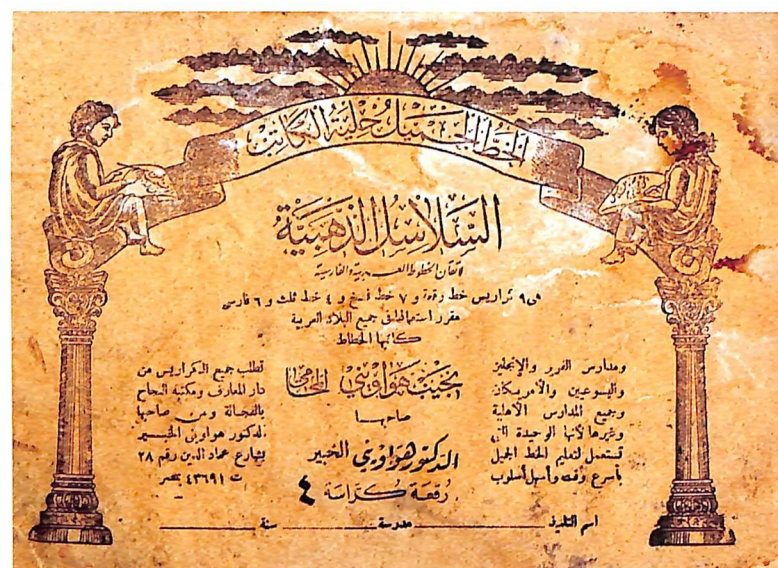 الخط الجميل حلية الكاتب
السلاسل الذهبية
لاتقان الخطوط العربية والفارسية
٩ كراريس خط رقعة و ٧ خط نسخ و ٤ خط ثلث و ٦ فارسى
مقرر استعمالها فى جميع البلاد العربية
كاتبها الخطاط
نجيب هواويني المحامي
صاحبها
الدكتور هواويني الخبير
رقعة كراسة ٤
ومدارس الفرير والإنجليز
واليسوعيين والأمريكان
وجميع المدارس الأهلية
وغيرها لأنها الوحيدة التي
تستعمل لتعليم الخط الجميل
بأسرع وقت وأسهل أسلوب
تطلب جميع الكراريس من
دار المعارف ومكتبة النجاح
بالفجالة ومن صاحبها
الدكتور هواويني الخبير
بشارع عماد الدين رقم ٢٨
ت ٤٣٦٩١ بمصر
اسم التلميذ مدرسة سنة